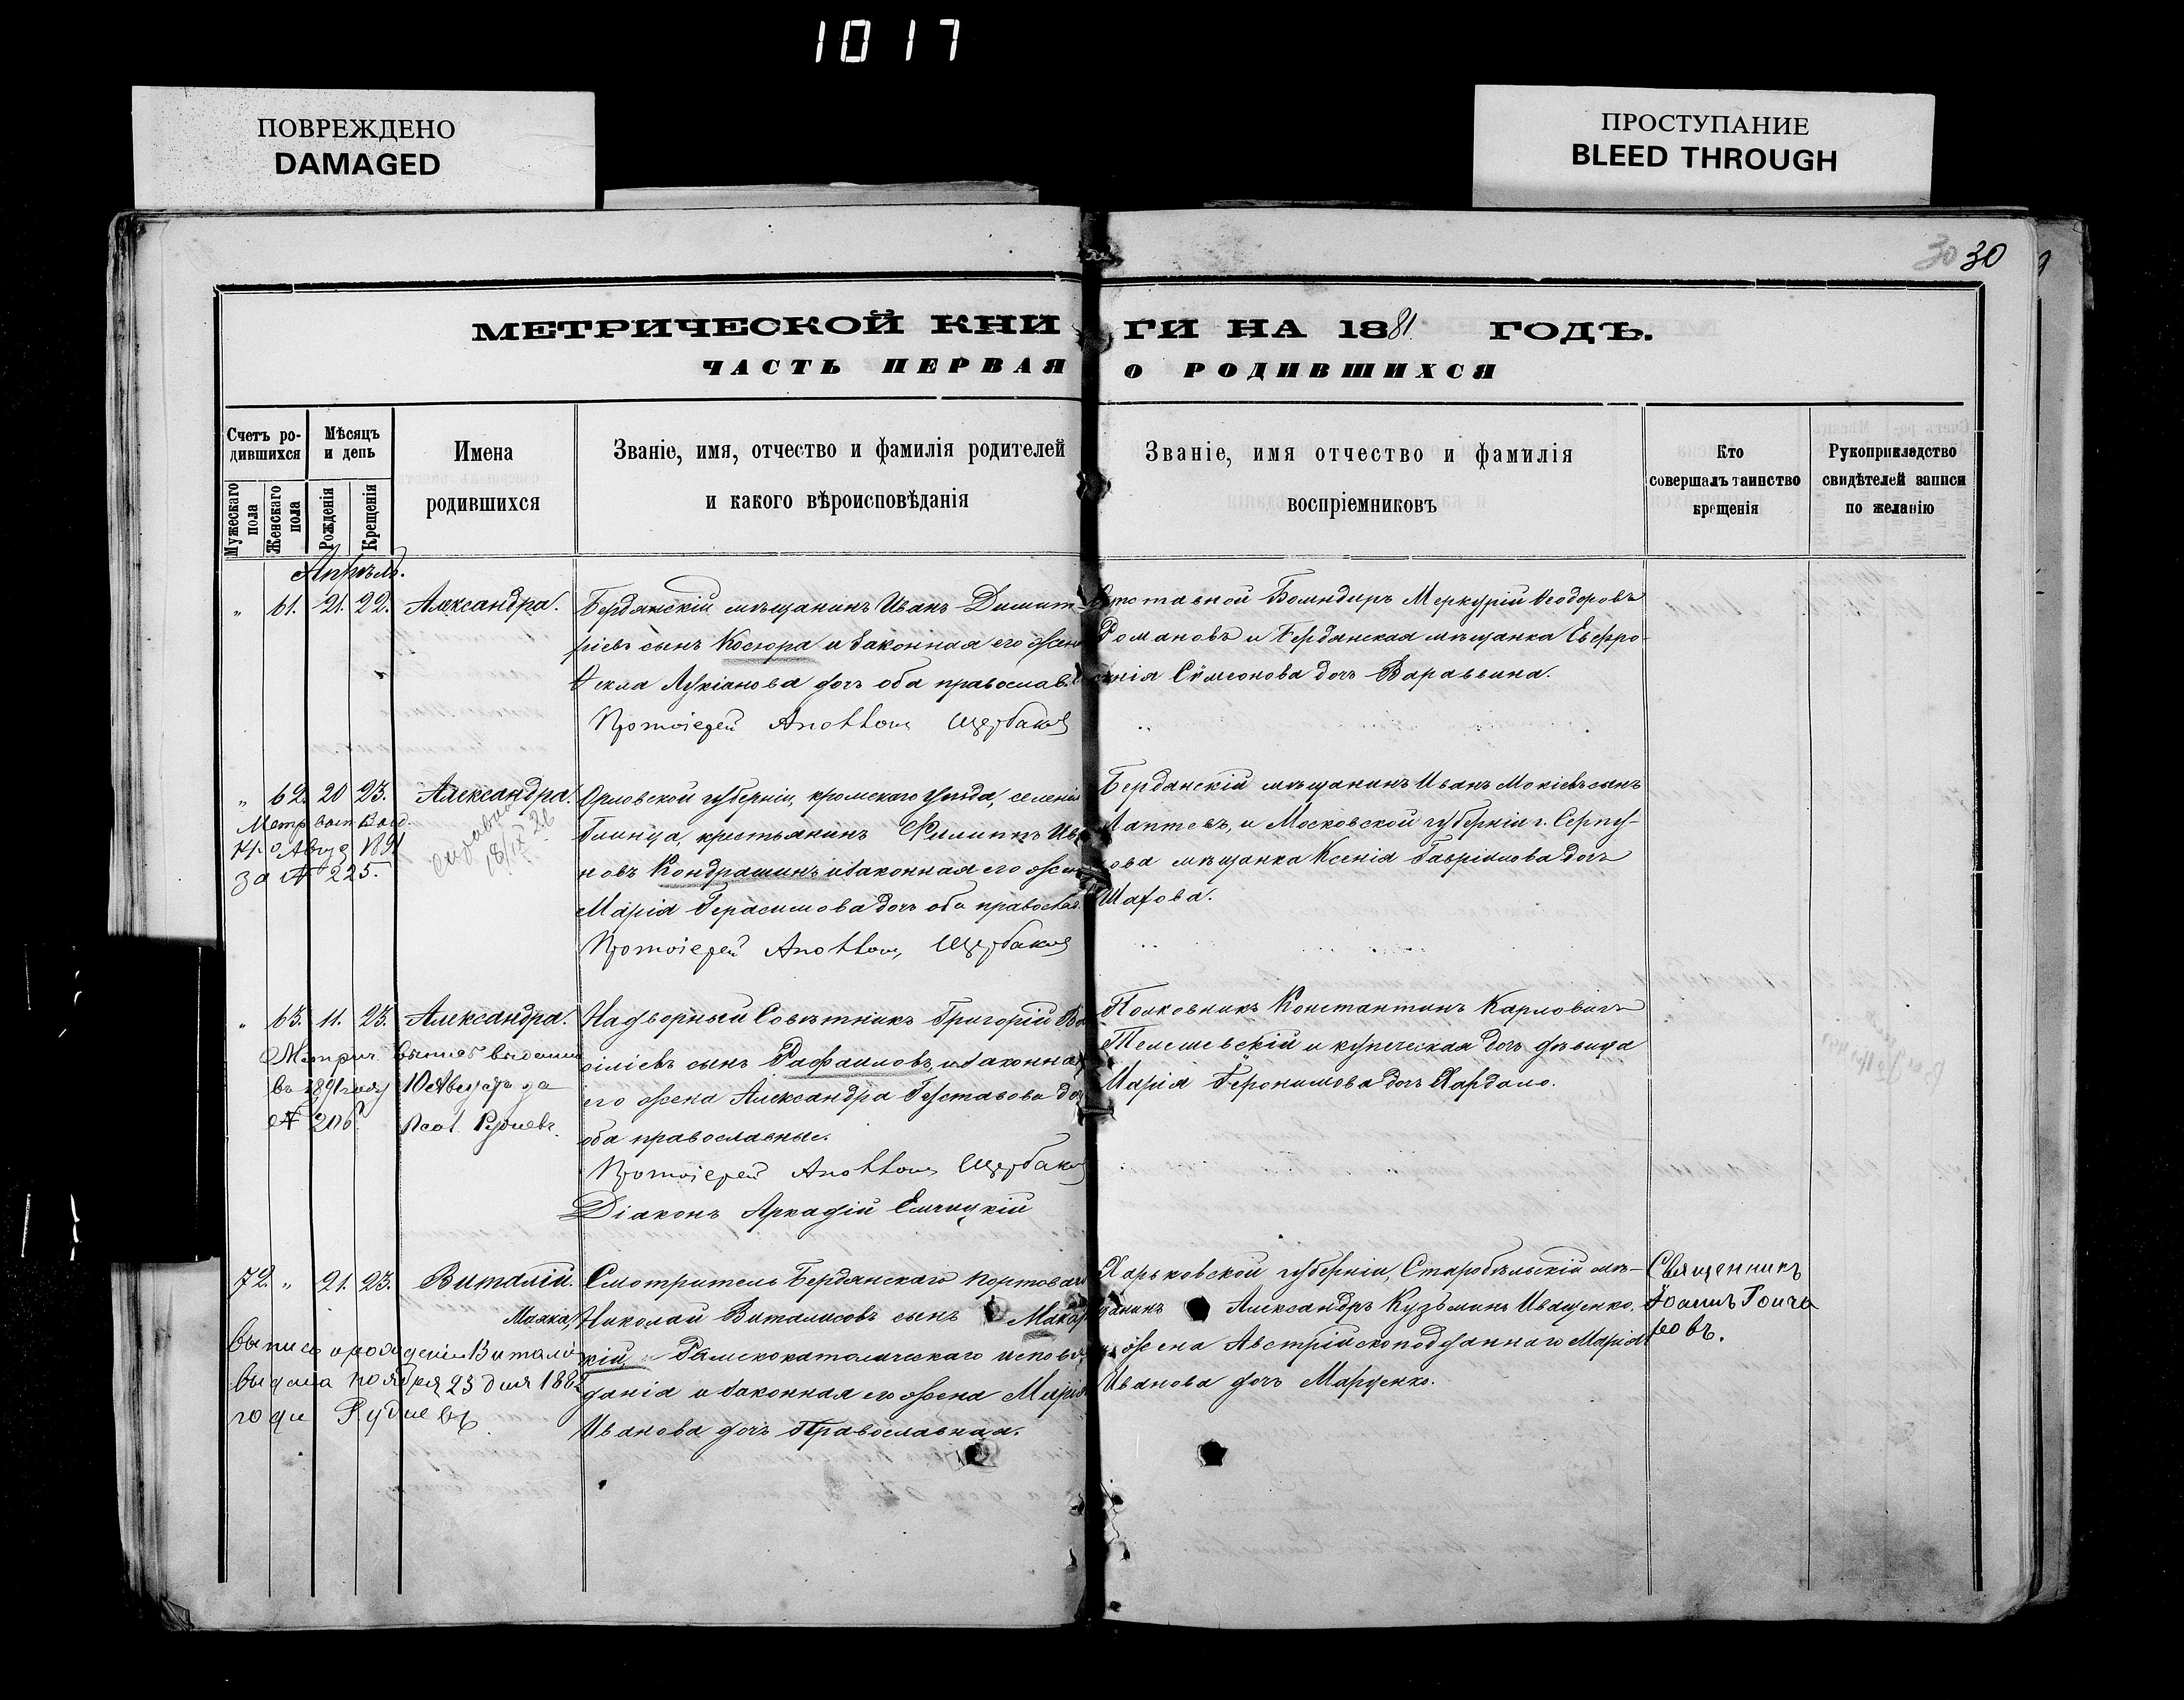 1017
ПОВРЕЖДЕНО
DAMAGED
ПРОСТУПАНИЕ
BLEED THROUGH
30 30
МЕТРИЧЕСКОЙ КНИГИ НА 1881 ГОДЪ.
ЧАСТЬ ПЕРВАЯ О РОДИВШИХСЯ
Счетъ ро-
дившихся
Мужескаго
пола
Женскаго
пола
Мѣсяцъ
и день
Рожденія
Крещенія
Имена
родившихся
Званіе, имя, отчество и фамилія родителей
и какого вѣроисповѣданія
Званіе, имя отчество и фамилія
воспріемниковъ
Кто
совершалъ таинство
крещенія
Рукоприкладство
свидѣтелей записи
по желанію
Апрѣль.
„ 61. 21. 22. Александра.
Бердянскій мѣщанинъ Иванъ Димит-
ріевъ сынъ Косюра и законная его жена
Ѳекла Лукіанова дочь оба православ.
Протоіерей Щербаковъ
Отставной Бомндиръ Меркурій Ѳеодоровъ
Романовъ и Бердянская мѣщанка Евфро-
Сѵмеонова дочь Вараввина.
„ 62. 20 23. Александра.
Метр. вып. выд.
14-го Авгус 1891
за № 225.
18/IX 26
Орловской губерніи, кромскаго уѣзда, селенія
Глинца, крестьянинъ Филиппъ Ива
новъ Кондрашинъ и законная его жена
Марія Герасимова дочь оба православ.
Протоіерей Щербаковъ
Бердянскій мѣщанинъ Иванъ Мокіевъ сынъ
Лаптевъ, и Московской губерніи г. Серпу-
хова мѣщанка Ксенія Гавріилова дочь
Шахова.
„ 63. 11. 23. Александра.
Метрич. выпись выдана
въ 1891 году 10 Августа за
№ 206. Псал. Рудневъ.
Надворный Совѣтникъ Григорій Ва
силіевъ сынъ Рафаиловъ, и законная
его жена Александра Густавова доч
оба православные.
Протоіерей Щербаковъ
Діаконъ Аркадій
Полковникъ Константинъ Карловичъ
Телешевскій и купеческая дочь дѣвица
Марія Іеронимова дочь
72. „ 21. 23. Виталій.
выпись о рожденіи Витали
выдана ноября 23 дня 1882
года Рудневъ
Смотритель Бердянскаго портоваго
Маяка, Николай Виталисовъ сынъ Макар
кій Римскокатолическаго исповѣ
данія и законная его жена Марія
Иванова дочь Православная.
Харьковской губерніи, Старобѣльскій мѣ-
щанинъ Александръ Кузьминъ Иващенко.
и жена Австрійскоподданнаго Марія
Иванова дочь Марченко.
Священникъ
Іоаннъ Гонча
ровъ.